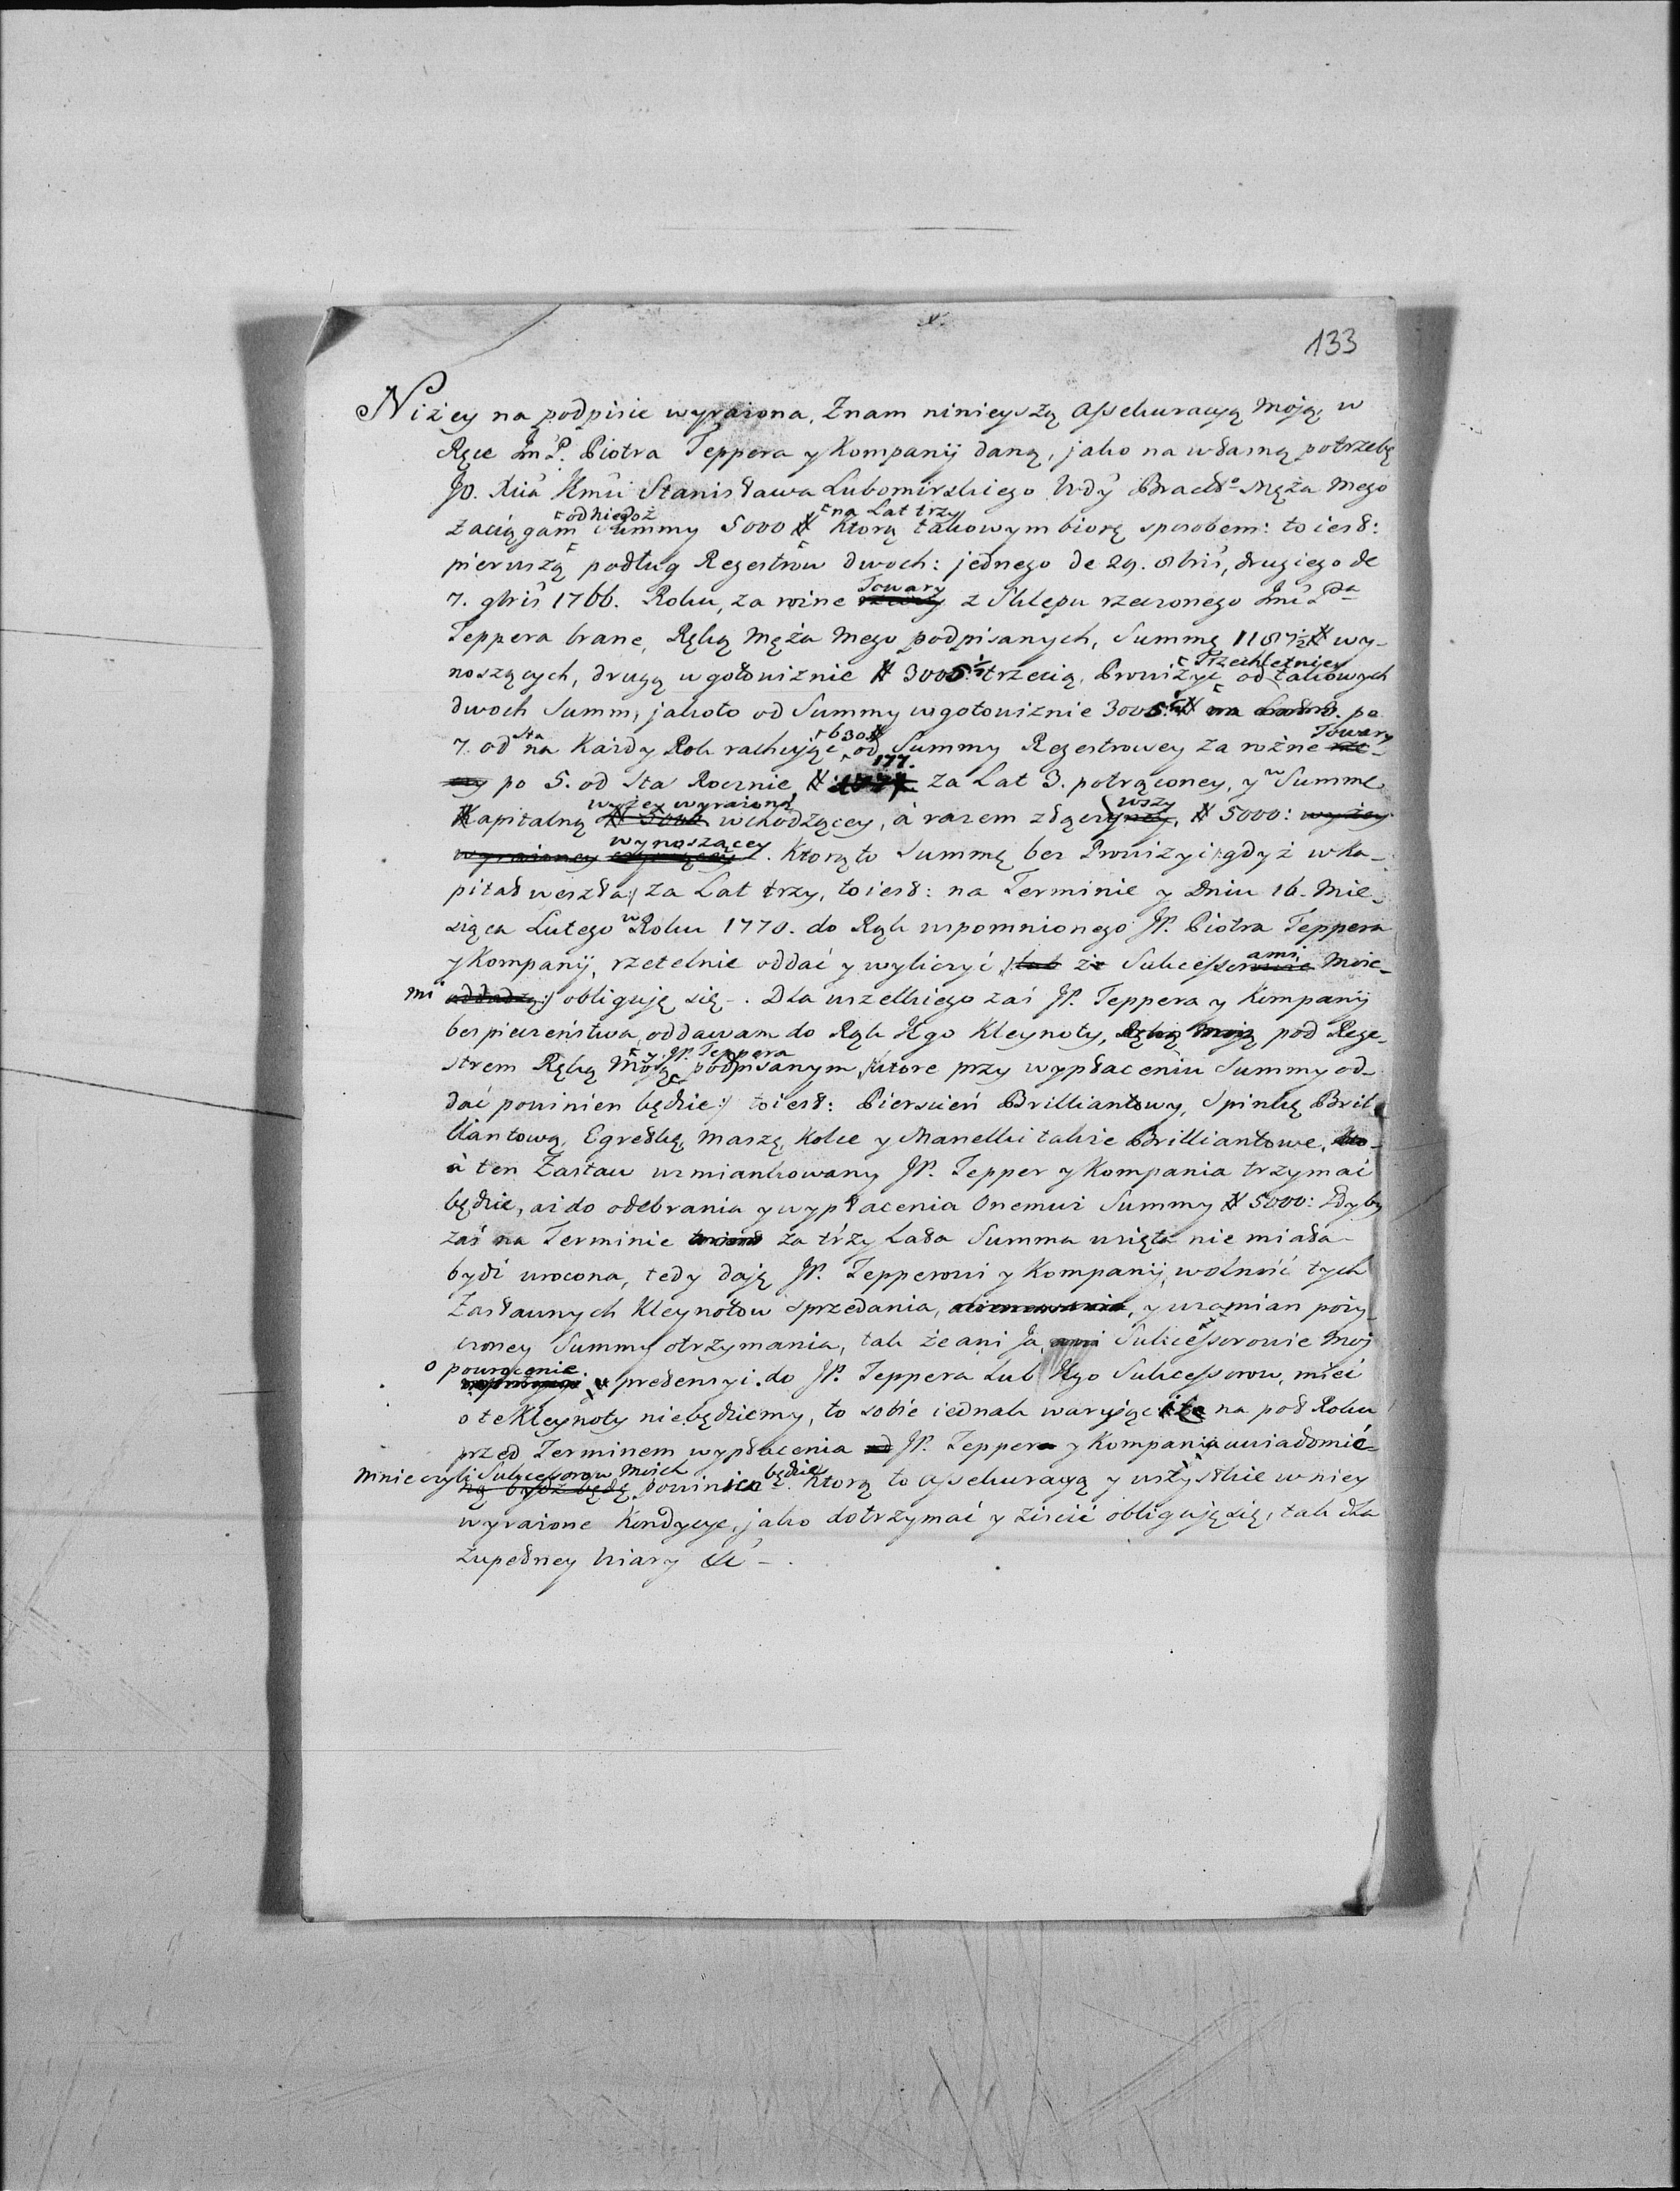 133
Niżey na podpisie wyrażona, Znam ninieyszą Assekuracyą Moją, w
Ręce Jm P. Piotra Teppera y Kompanij daną, jako na własną potrzebę
JO. Xcia Jmci Stanisława Lubomirskiego Męża Mego
Zaciągam od niegoż Summy 5000 # na Lat trzy Ktorą takowym biorę sposobem: to iest:
pierwszą podług Regestrow dwoch: jednego de 29. 8bris, drugiego de
7. 9bris 1766. Roku, za rożne Towary rzeczy z Sklepu rzeczonego Jmci Pna
Teppera brane, Ręką Męża Mego podpisanych, Summę 1187½ # wy-
noszących, drugą w gotowiznie # 3005½ trzecią, Prowizyę Trzechletnią od takowych
dwoch Summ, jakoto od Summy w gotowiznie 3005½ # po
7. od Sta na Każdy Rok rachując 630 # od Summy Regestrowey za rożne Towary rze-
czy po 5. od Sta Rocznie, # 177. za Lat 3. potrąconey, y w Summę
Kapitalną wyżey wyrażoną # 5000 wchodzącey, à razem złączywszy, # 5000: wyżey
wyrażoney wynoszącey. Ktorą to Summę bez Prowizyi /: gdyż w Ka-
pitał weszła :/ za Lat trzy, to iest: na Terminie y Dniu 16. Mie-
siąca Lutego w Roku 1770. do Rąk wspomnionego JP. Piotra Teppera
y Kompanij, rzetelnie oddać y wyliczyć /: lub że Sukcessorowie ami Moie-
mi oddadzą :/ obliguję się -. Dla wszelkiego zaś JP. Teppera y Kompanij
bespieczeństwa, oddawam do Rąk Jego Kleynoty, Ręką Moją pod Rege-
strem Ręką Moją y JP. Teppera podpisanym, /: Ktore przy wypłaceniu Summy od-
dać powinien będzie :/ to iest: Pierscień Brilliantowy, Spinkę Bril-
liantową, Egretkę, Maszę, Kolce y Manelki także Brilliantowe,
à ten Zastaw wzmiankowany JP. Tepper y Kompania trzymać
będzie, aż do odebrania y wypłacenia Onemuż Summy # 5000: Gdyby
zaś na Terminie za trzy Lata Summa wzięta nie miała
bydź wrocona, tedy daję JP. Tepperowi y Kompanij, wolność tych
Zastawnych Kleynotow sprzedania, y wzamian poży-
czoney Summy otrzymania, tak że ani Ja, ani Sukcessorowie Moj
o powrocenie pretensyi do JP. Teppera Lub Jego Sukcessorow, mieć
o te Kleynoty niebędziemy, to sobie iednak waruję że na poł Roku
przed Terminem wypłacenia JP. Teppera y Kompania uwiadomić
Mnie czyli Sukcessorow Moich ną bydź będę powinien będzie. Ktorą to Assekuracyą y wszystkie w niey
wyrażone Kondycye, jako dotrzymać y ziścić obliguję się, tak dla
zupełney Wiary &c -.